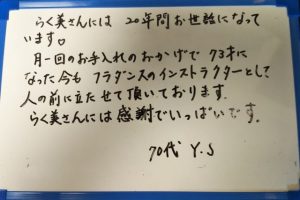 らく美さんには 20年間お世話になって
います。
月一回のお手入れのおかげで 73才に
なった今も フラダンスのインストラクターとして
人の前に立たせて頂いております.
らく美さんには感謝でいっぱいです.
70代 Y.S